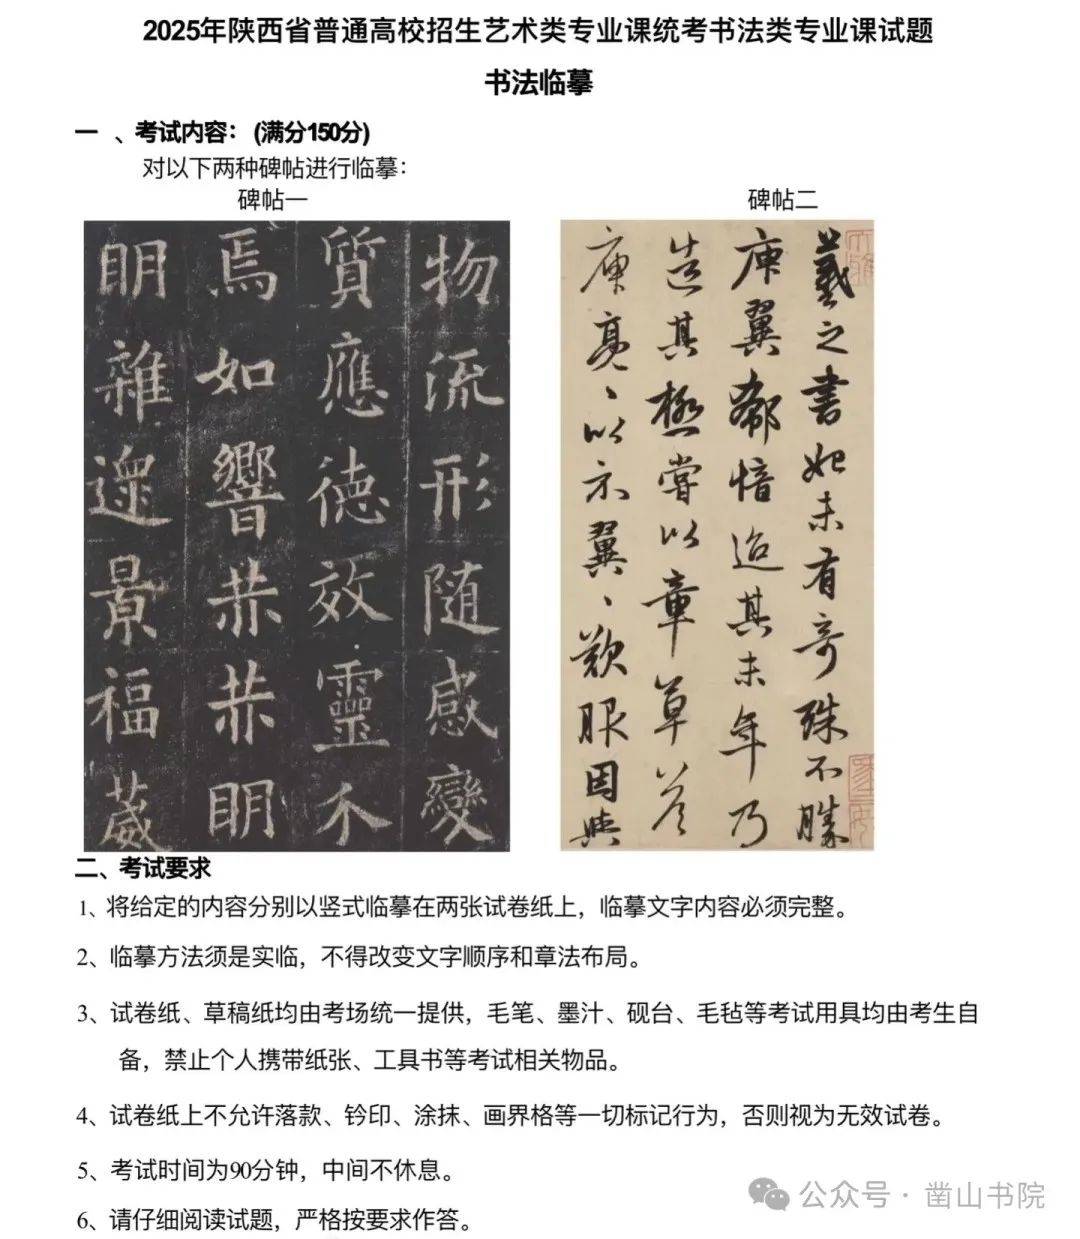 2025年陕西省普通高校招生艺术类专业课统考书法类专业课试题
书法临摹
一 、考试内容：(满分150分)
对以下两种碑帖进行临摹：
碑帖一
物流形随感變
質應德效靈不
焉如響恭恭明
明雜遝景福葳
碑帖二
羲之書始未有奇殊不勝
庾翼郗愔迨其末年乃
造其極嘗以章草答
庾亮、以示翼、歎服因與
二、考试要求
1、将给定的内容分别以竖式临摹在两张试卷纸上，临摹文字内容必须完整。
2、临摹方法须是实临，不得改变文字顺序和章法布局。
3、试卷纸、草稿纸均由考场统一提供，毛笔、墨汁、砚台、毛毡等考试用具均由考生自
备，禁止个人携带纸张、工具书等考试相关物品。
4、试卷纸上不允许落款、钤印、涂抹、画界格等一切标记行为，否则视为无效试卷。
5、考试时间为90分钟，中间不休息。
6、请仔细阅读试题，严格按要求作答。
公众号 · 凿山书院